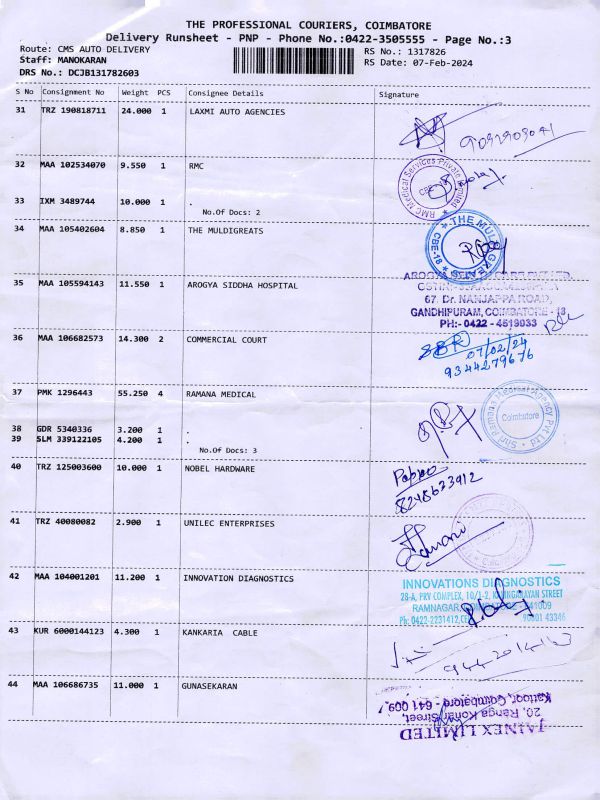 THE PROFESSIONAL COURIERS, COIMBATORE
Delivery Runsheet - PNP - Phone No.:0422-3505555 - Page No.:3
Route: CMS AUTO DELIVERY
RS No.: 1317826
Staff: MANOKARAN
RS Date: 07-Feb-2024
DRS No.: DCJB131782603
S No Consignment No Weight PCS Consignee Details Signature
31 TRZ 190818711 24.000 1 LAXMI AUTO AGENCIES
9092909041
32 MAA 102534070 9.550 1 RMC
RMC Medical Services Private Limited
CBE
33 IXM 3489744 10.000 1 .
No.Of Docs: 2
34 MAA 105402604 8.850 1 THE MULDIGREATS
THE MULDIGREATS
CBE-18
35 MAA 105594143 11.550 1 AROGYA SIDDHA HOSPITAL
67, Dr. NANJAPPA ROAD,
GANDHIPURAM, COIMBATORE - 18
PH:- 0422 - 4519933
36 MAA 106682573 14.300 2 COMMERCIAL COURT
07/02/24
9344279676
37 PMK 1296443 55.250 4 RAMANA MEDICAL
Sri Ramana Medical Agency Pvt Ltd
Coimbatore
38 GDR 5340336 3.200 1 .
39 SLM 339122105 4.200 1 .
No.Of Docs: 3
40 TRZ 125003600 10.000 1 NOBEL HARDWARE
8248673912
41 TRZ 40080082 2.900 1 UNILEC ENTERPRISES
42 MAA 104001201 11.200 1 INNOVATION DIAGNOSTICS
INNOVATIONS DIAGNOSTICS
28-A, PRV COMPLEX, 10/1-2, KALINGARAYAN STREET
RAMNAGAR, COIMBATORE - 641009
Ph: 0422-2231412, 90801 43346
43 KUR 6000144123 4.300 1 KANKARIA CABLE
44 MAA 106686735 11.000 1 GUNASEKARAN
JAINEX LIMITED
20, Ranga Konar Street,
Kattoor, Coimbatore - 641 009.